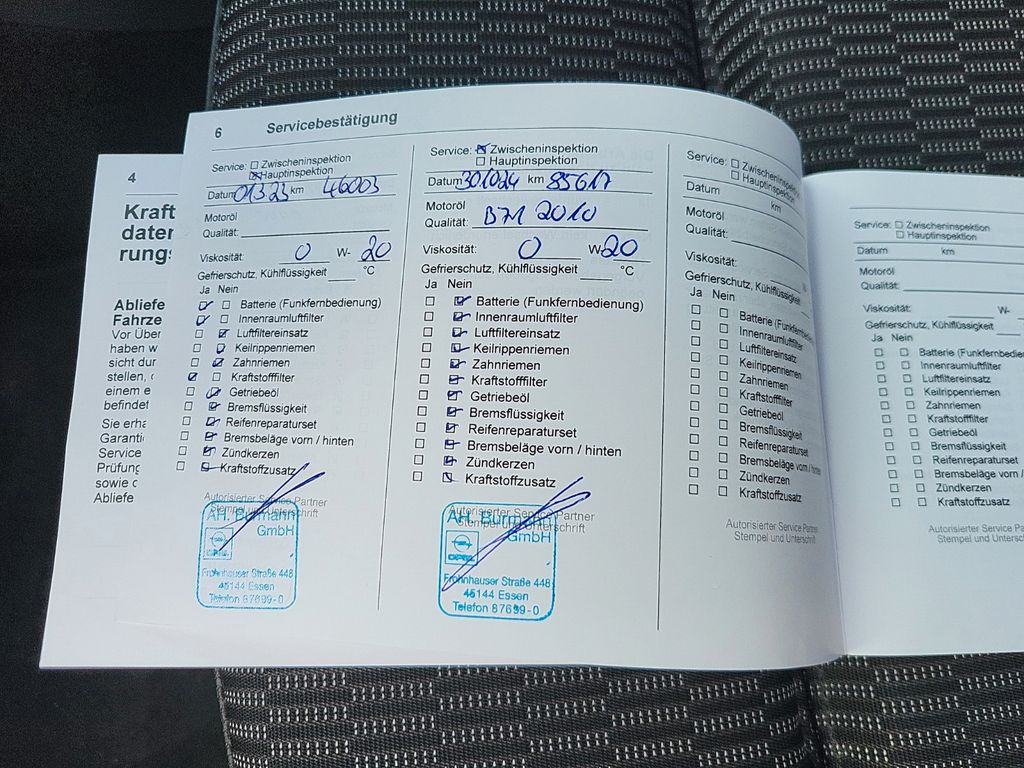 6 Servicebestätigung
4
Kraft
Abliefe
Fahrze
Vor Über
haben w
sicht dur
stellen,
einem e
befindet
Sie erha
Garanti
Service
Prüfung
sowie
Abliefe
Service: Zwischeninspektion
Hauptinspektion
Datum 01323 km 46003
Motoröl
Qualität:
Viskosität: 0 W- 20
Gefrierschutz, Kühlflüssigkeit °C
Ja Nein
Batterie (Funkfernbedienung)
Innenraumluftfilter
Luftfiltereinsatz
Keilrippenriemen
Zahnriemen
Kraftstofffilter
Getriebeöl
Bremsflüssigkeit
Reifenreparaturset
Bremsbeläge vorn / hinten
Zündkerzen
Kraftstoffzusatz
Autorisierter Service Partner
AH. Burmann
GmbH
OPEL
Frohnhauser Straße 448
45144 Essen
Telefon 87699-0
Service: Zwischeninspektion
Hauptinspektion
Datum 301024 km 85617
Motoröl
Qualität: B71 2010
Viskosität: 0 W- 20
Gefrierschutz, Kühlflüssigkeit °C
Ja Nein
Batterie (Funkfernbedienung)
Innenraumluftfilter
Luftfiltereinsatz
Keilrippenriemen
Zahnriemen
Kraftstofffilter
Getriebeöl
Bremsflüssigkeit
Reifenreparaturset
Bremsbeläge vorn / hinten
Zündkerzen
Kraftstoffzusatz
Autorisierter Service Partner
Stempel und Unterschrift
AH. Burmann
GmbH
OPEL
Frohnhauser Straße 448
45144 Essen
Telefon 87699-0
Service: Zwischeninspektion
Hauptinspektion
Datum km
Motoröl
Qualität:
Viskosität: W
Gefrierschutz, Kühlflüssigkeit
Ja Nein
Batterie (Funkfernbe
Innenraumluftfilter
Luftfiltereinsatz
Keilrippenriemen
Zahnriemen
Kraftstofffilter
Getriebeöl
Bremsflüssigkeit
Reifenreparaturset
Bremsbeläge vorn / hinten
Zündkerzen
Kraftstoffzusatz
Autorisierter Service Partne
Stempel und Unterschrift
Service: Zwischeninspektion
Hauptinspektion
Datum km
Motoröl
Qualität:
Viskosität: W-
Gefrierschutz, Kühlflüssigkeit
Ja Nein
Batterie (Funkfernbedie
Innenraumluftfilter
Luftfiltereinsatz
Keilrippenriemen
Zahnriemen
Kraftstofffilter
Getriebeöl
Bremsflüssigkeit
Reifenreparaturset
Bremsbeläge vorn /
Zündkerzen
Kraftstoffzusatz
Autorisierter Service Pa
Stempel und Untersch